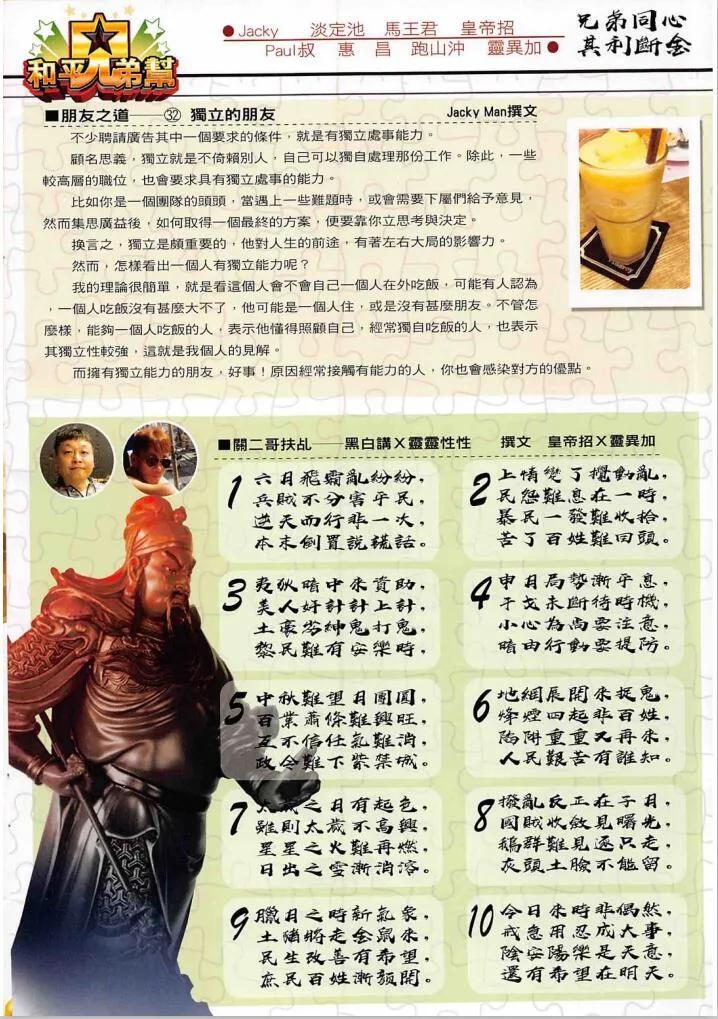 和平兄弟幫
Jacky 淡定池 馬王君 皇帝招
Paul叔 惠昌 跑山沖 靈異加
兄弟同心
其利斷金
■朋友之道——㉜ 獨立的朋友 Jacky Man撰文
不少聘請廣告其中一個要求的條件，就是有獨立處事能力。
顧名思義，獨立就是不倚賴別人，自己可以獨自處理那份工作。除此，一些
較高層的職位，也會要求具有獨立處事的能力。
比如你是一個團隊的頭頭，當遇上一些難題時，或會需要下屬們給予意見，
然而集思廣益後，如何取得一個最終的方案，便要靠你立思考與決定。
換言之，獨立是頗重要的，他對人生的前途，有著左右大局的影響力。
然而，怎樣看出一個人有獨立能力呢？
我的理論很簡單，就是看這個人會不會自己一個人在外吃飯，可能有人認為
，一個人吃飯沒有甚麼大不了，他可能是一個人住，或是沒有甚麼朋友。不管怎
麼樣，能夠一個人吃飯的人，表示他懂得照顧自己，經常獨自吃飯的人，也表示
其獨立性較強，這就是我個人的見解。
而擁有獨立能力的朋友，好事！原因經常接觸有能力的人，你也會感染對方的優點。
■關二哥扶乩——黑白講X靈靈性性 撰文 皇帝招X靈異加
1 六月飛霜亂紛紛，
兵賊不分害平民，
逆天而行非一次，
本末倒置說謊話。
2 上情變了攪動亂，
民怨難息在一時，
暴民一發難收拾，
苦了百姓難回頭。
3 夷狄暗中來資助，
美人奸計計上計，
土豪劣紳鬼打鬼，
黎民難有安樂時，
4 申月局勢漸平息，
干戈未斷待時機，
小心為尚要注意，
暗由行動要提防。
5 中秋難望月團圓，
百業蕭條難興旺，
互不信任氣難消，
政令難下紫禁城。
6 地網展開來捉鬼，
烽煙四起非百姓，
陷阱重重又再來，
人民艱苦有誰知。
7 太歲之月有起色，
雖則太歲不高興，
星星之火難再燃，
日出之雪漸消溶。
8 撥亂反正在子月，
國賊收斂見曙光，
鵝群難見逐只走，
灰頭土臉不能留。
9 臘月之時新氣象，
土豬將走金鼠來，
民生改善有希望，
庶民百姓漸顏開。
10 今日來時非偶然，
戒急用忍成大事，
陰安陽樂是天意，
還有希望在明天。